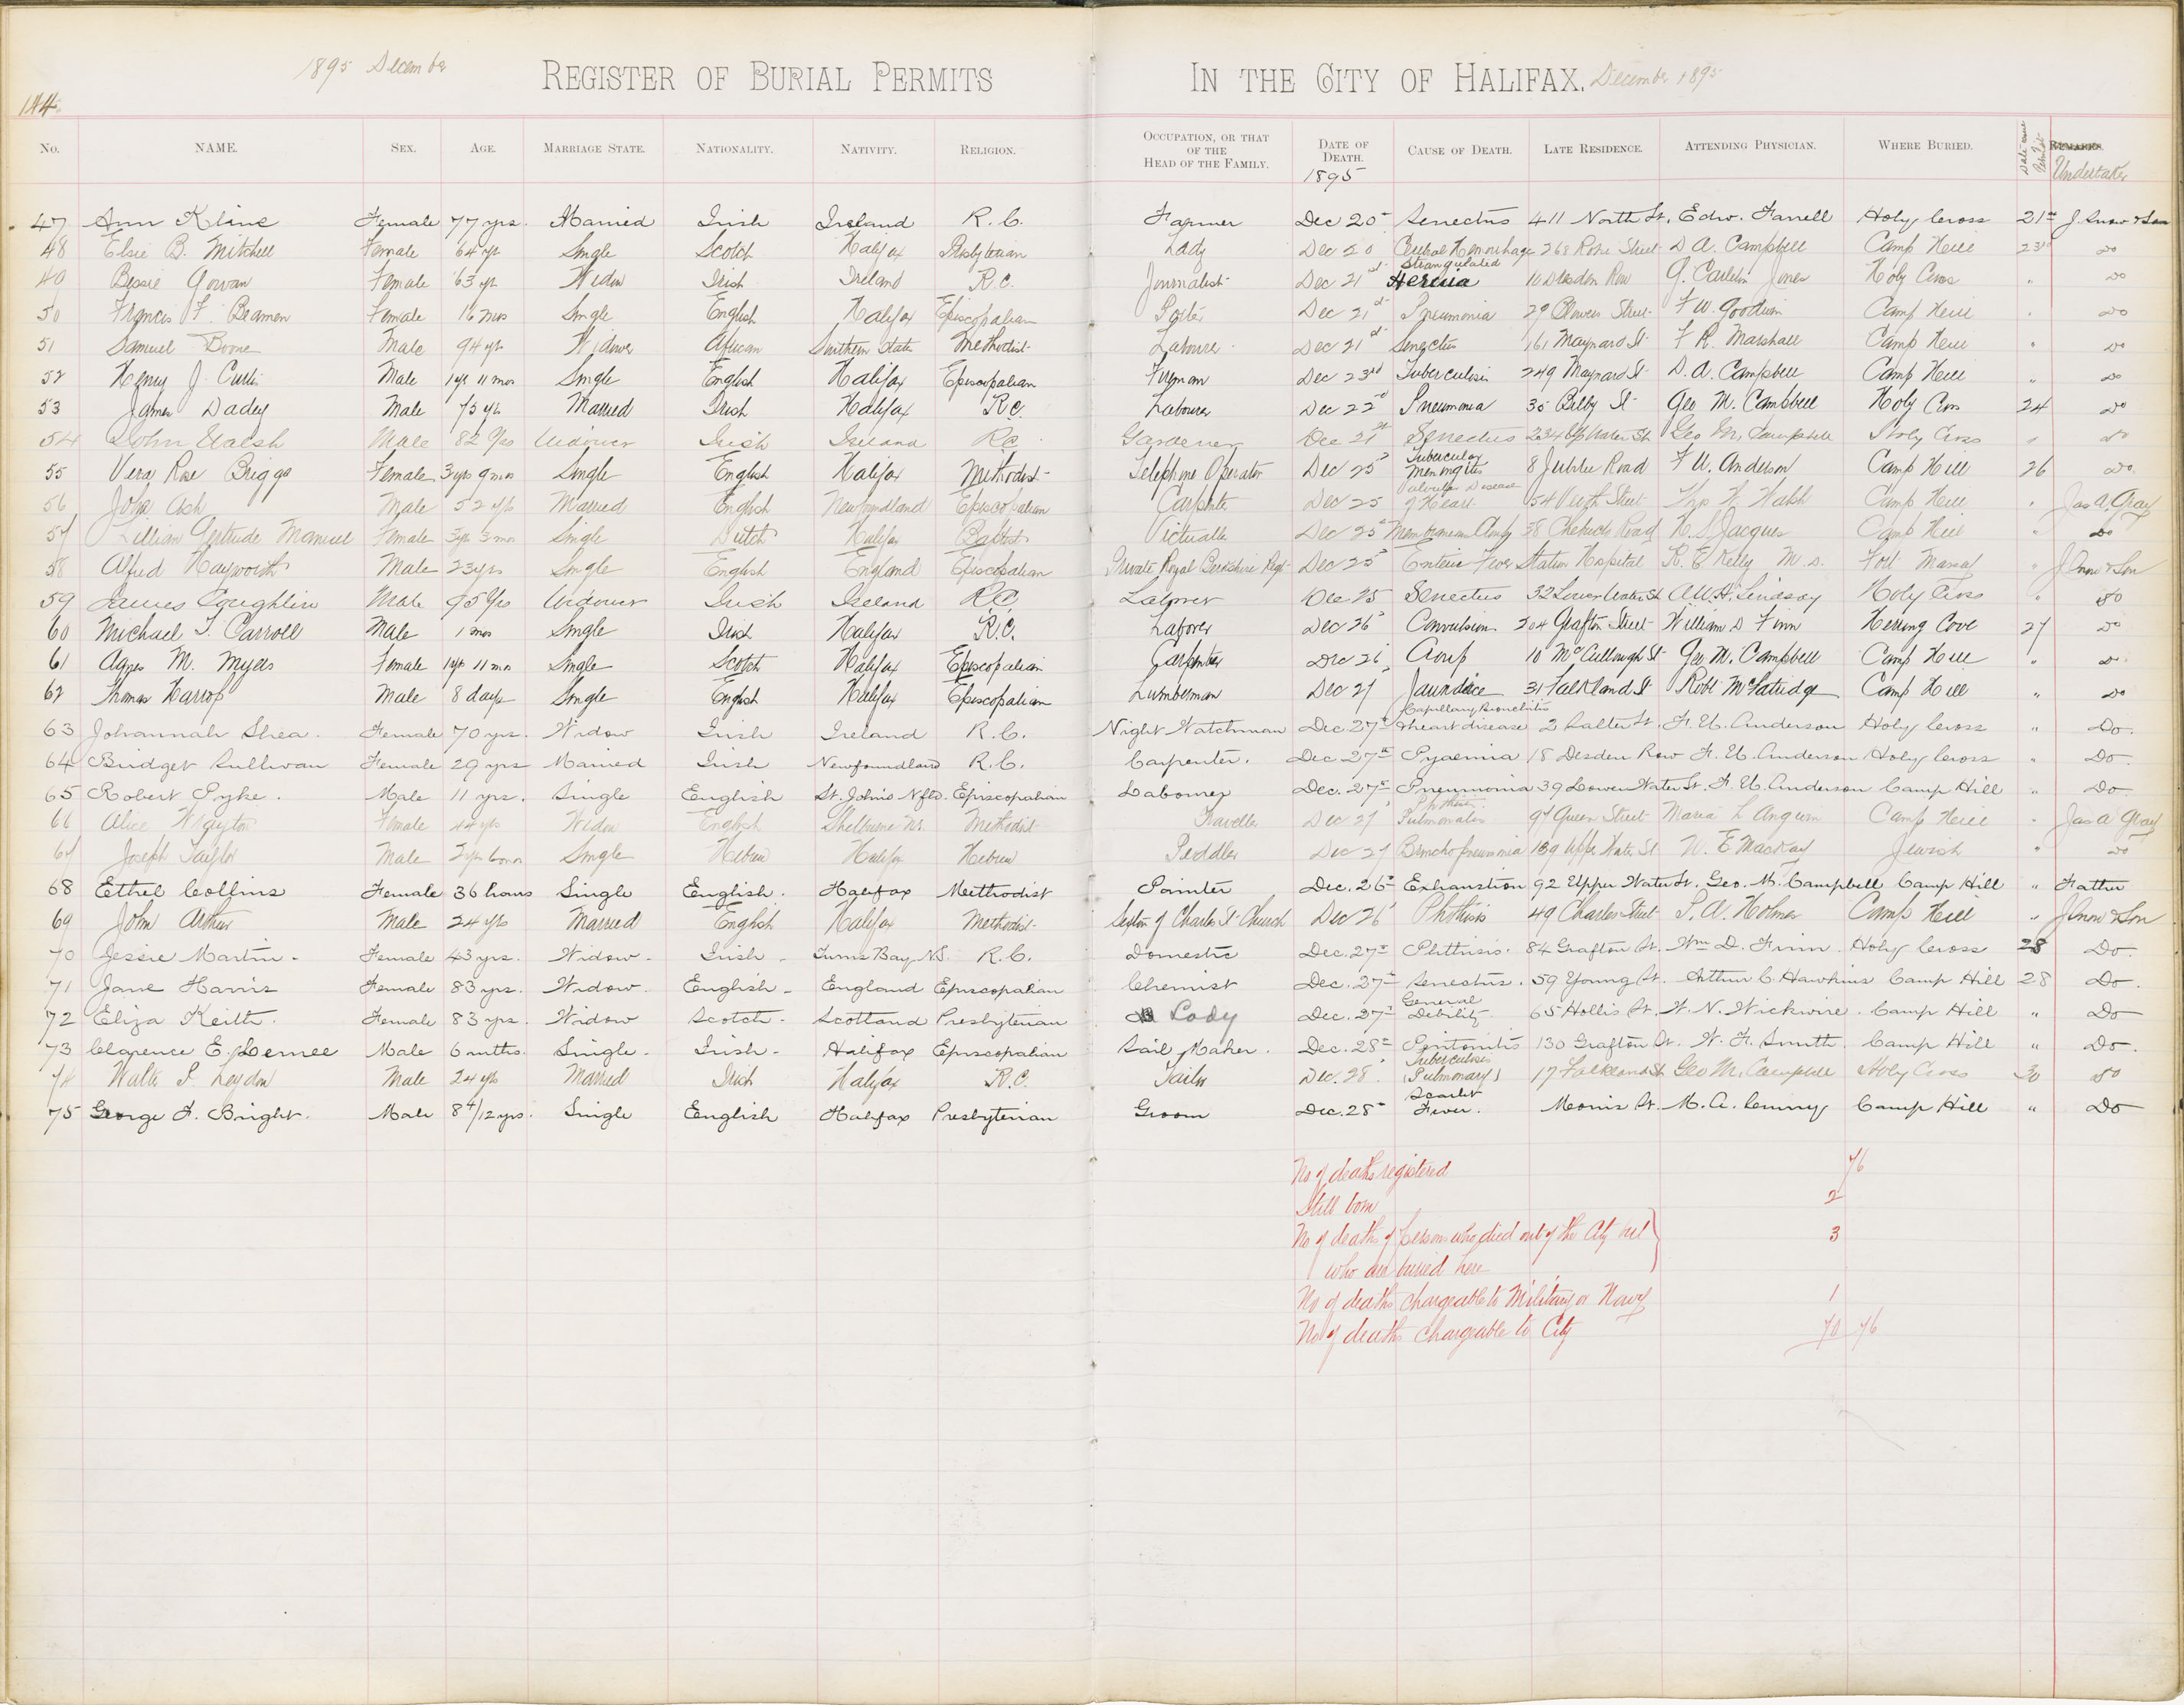 1895 December
REGISTER OF BURIAL PERMITS IN THE CITY OF HALIFAX. December 1895
144
No. NAME. SEX. AGE. MARRIAGE STATE. NATIONALITY. NATIVITY. RELIGION. OCCUPATION, OR THAT OF THE HEAD OF THE FAMILY. DATE OF DEATH. 1895 CAUSE OF DEATH. LATE RESIDENCE. ATTENDING PHYSICIAN. WHERE BURIED. REMARKS. Undertaker
47 Ann Kline Female 77 yrs. Married Irish Ireland R. C. Farmer Dec 20th Senectus 411 North St. Edw. Farrell Holy Cross 21st J. Snow & Son
48 Elsie B. Mitchell Female 64 yrs Single Scotch Halifax Presbyterian Lady Dec 20 Cerebral Hemorrhage 268 Robie Street D A. Campbell Camp Hill 23rd Do
49 Bessie Gowan Female 63 yrs Widow Irish Ireland R.C. Journalist Dec 21st Strangulated Hernia 10 Dresden Row G. Carleton Jones Holy Cross " Do
50 Francis F. Beamen Female 16 mos Single English Halifax Episcopalian Porter Dec 21st Pneumonia 29 Blowers Street F W. Goodwin Camp Hill " Do
51 Samuel Boone Male 94 yrs Widower African Southern States Methodist Labourer Dec 21st Senectus 161 Maynard St F R. Marshall Camp Hill " Do
52 Henry J. Curtis Male 1 yr 11 mos Single English Halifax Episcopalian Fireman Dec 23rd Tuberculosis 249 Maynard St D. A. Campbell Camp Hill " Do
53 James Dadey Male 75 yrs Married Irish Halifax R.C. Labourer Dec 22nd Pneumonia 35 Bilby St Geo M. Campbell Holy Cross 24 Do
54 John Walsh Male 82 yrs Widower Irish Ireland RC Gardener Dec 21st Senectus 234 Up Water St Geo M. Campbell Holy Cross " Do
55 Vera Rose Briggs Female 3 yrs 9 mos Single English Halifax Methodist Telephone Operator Dec 25th Tubercular Meningitis 8 Jubilee Road F U. Anderson Camp Hill 26 Do
56 John Ash Male 52 yrs Married English Newfoundland Episcopalian Carpenter Dec 25 Valvular Disease of Heart 54 Veith Street Thos W Walsh Camp Hill " Jas A. Gray
57 Lillian Gertrude Manuel Female 3 yrs 3 mos Single Dutch Halifax Baptist Victualler Dec 25th Membraneous Croup 38 Chebucto Road H. S. Jacques Camp Hill " Do
58 Alfred Hayworth Male 23 yrs Single English England Episcopalian Private Royal Berkshire Regt Dec 25th Enteric Fever Station Hospital R. E Kelly M. D. Fort Massey " J Snow & Son
59 James Coughlin Male 75 yrs Widower Irish Ireland RC Laborer Dec 25 Senectus 32 Lower Water St A.W.H. Lindsay Holy Cross " Do
60 Michael J. Carroll Male 1 mos Single Irish Halifax R.C. Laborer Dec 26th Convulsion 204 Grafton Street William D Finn Herring Cove 27 Do
61 Agnes M. Myers Female 1 yr 11 mos Single Scotch Halifax Episcopalian Carpenter Dec 26 Croup 10 McCullough St Geo M. Campbell Camp Hill " Do
62 Thomas Harrop Male 8 days Single English Halifax Episcopalian Lumberman Dec 27 Jaundice 31 Falkland St Robt McFatridge Camp Hill " Do
63 Johannah Shea. Female 70 yrs. Widow Irish Ireland R. C. Night Watchman Dec 27th Capillary Bronchitis & heart disease 2 Salter St. F. U. Anderson Holy Cross " Do.
64 Bridget Sullivan Female 29 yrs Married Irish Newfoundland R. C. Carpenter. Dec 27th Pyaemia 18 Desden Row F. U. Anderson Holy Cross " Do.
65 Robert Pyke. Male 11 yrs. Single English St. John's Nfld. Episcopalian Labourer Dec. 27th Pneumonia 39 Lower Water St. F. U. Anderson Camp Hill " Do.
66 Alice Wrayton Female 44 yrs Widow English Shelburne N.S. Methodist Traveller Dec 27 Phthisis Pulmonalis 97 Queen Street Maria L Angwin Camp Hill " Jas A Gray
67 Joseph Taylor Male 2 yrs 6 mos Single Hebrew Halifax Hebrew Peddler Dec 27 Broncho pneumonia 189 Upper Water St W. E MacKay Jewish " Do
68 Ethel Collins Female 36 hours Single English. Halifax Methodist Painter Dec. 26th Exhaustion 92 Upper Water St. Geo. M. Campbell Camp Hill " Father
69 John Arthur Male 24 yrs Married English Halifax Methodist Sexton of Charles St Church Dec 26 Phthisis 49 Charles Street S. A. Holmes Camp Hill " J Snow & Son
70 Jessie Martin Female 43 yrs. Widow Irish N.S. R. C. Domestic Dec. 27th Phthisis. 84 Grafton St. Wm D. Finn. Holy Cross 28 Do.
71 Jane Harris Female 83 yrs. Widow. English England Episcopalian Chemist Dec. 27th Senectus. 59 Young St. Arthur C. Hawkins Camp Hill 28 Do.
72 Eliza Keith. Female 83 yrs. Widow Scotch Scotland Presbyterian Lady Dec. 27th General Debility 65 Hollis St. W. N. Wickwire. Camp Hill " Do
73 Clarence E. Demee Male 6 mths. Single Irish Halifax Episcopalian Sail Maker. Dec. 28th Peritonitis 130 Grafton St. W. F. Smith. Camp Hill " Do.
74 Walter P. Leydon Male 24 yrs Married Irish Halifax R.C. Tailor Dec. 28. Tuberculosis (Pulmonary) 17 Falkland St Geo M. Campbell Holy Cross 30 Do
75 George F. Bright. Male 8 4/12 yrs. Single English Halifax Presbyterian Groom Dec. 28th Scarlet Fever. Morris St. M. A. Camp Hill " Do
No of deaths registered 76
Still born 2
No of deaths of persons who died out of the City but 3
who are buried here
No of deaths chargeable to Military or Navy 1
No of deaths chargeable to City 70 76